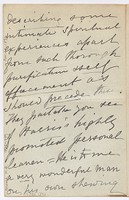 describing some
intimate spiritual
experiences apart
from such
purification & self
effacement as
should precede
They partake you see
of Harris's highly
promoted personal
He is to me
a very wonderful man
on his own showing